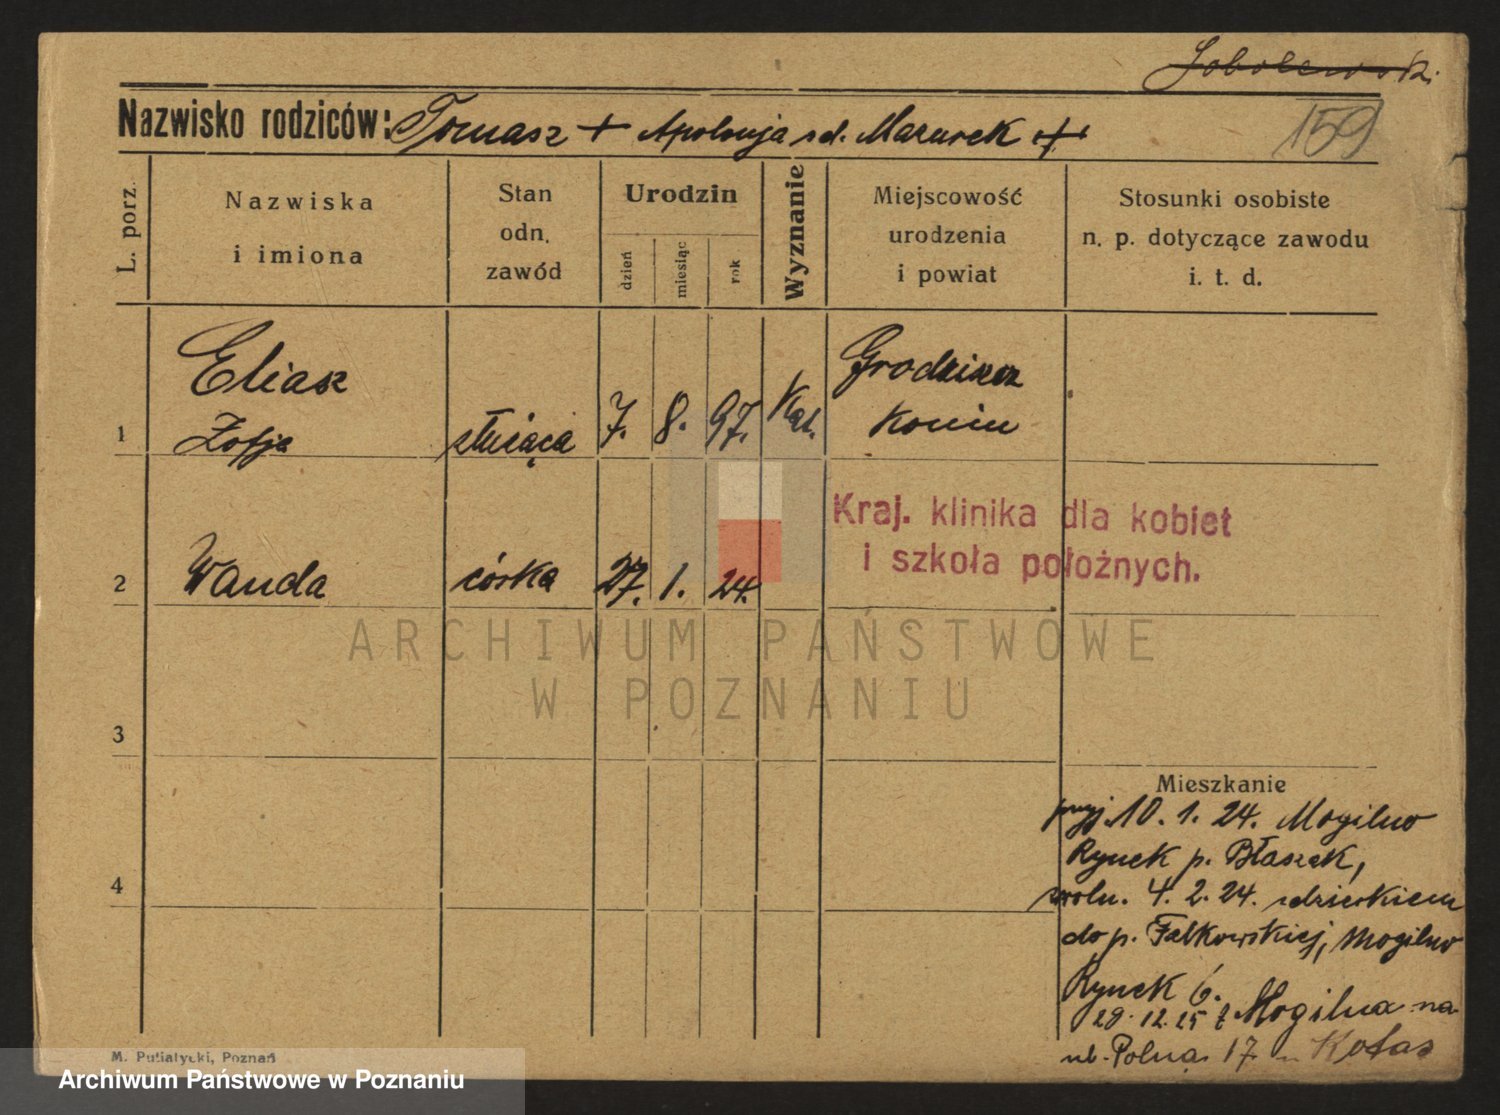 Sobolewski.
159
Nazwisko rodziców: Tomasz + Apolonja zd. Mazurek ++
L. porz.
Nazwiska
i imiona
Stan
odn.
zawód
Urodzin
dzień
miesiąc
rok
Wyznanie
Miejscowość
urodzenia
i powiat
Stosunki osobiste
n. p. dotyczące zawodu
i. t. d.
Eliasz
Grodzisko
1 Zofja służąca 7. 8. 97. Kat. Konin
Kraj. klinika dla kobiet
i szkoła położnych.
2 Wanda córka 27. 1. 24.
ARCHIWUM PAŃSTWOWE
W POZNANIU
3
Mieszkanie
przyj. 10. 1. 24. Mogilno
Rynek p. Błaszek,
4
zwoln. 4. 2. 24. z dzieckiem
do p. Falkowskiej, Mogilno
Rynek 6.
29. 12. 25 z Mogilna na
ul. Polną 17 Kotas
M. Putiatycki, Poznań
Archiwum Państwowe w Poznaniu